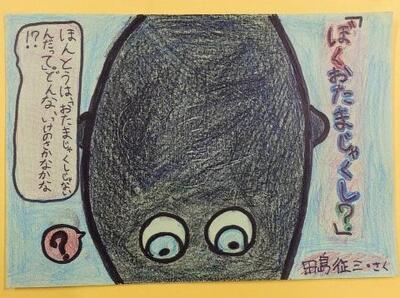 「ぼくおたまじゃくし?」
ほんとうは、おたまじゃくしじゃない
んだって。どんな、いけのさかなかな
!?
?
田島征三・さく